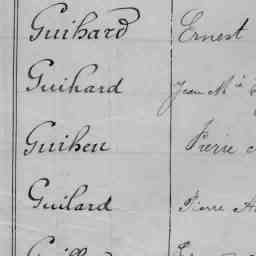 Guihard Ernest
Guihard Jean M.
Guiheu Pierre
Guilard Pierre